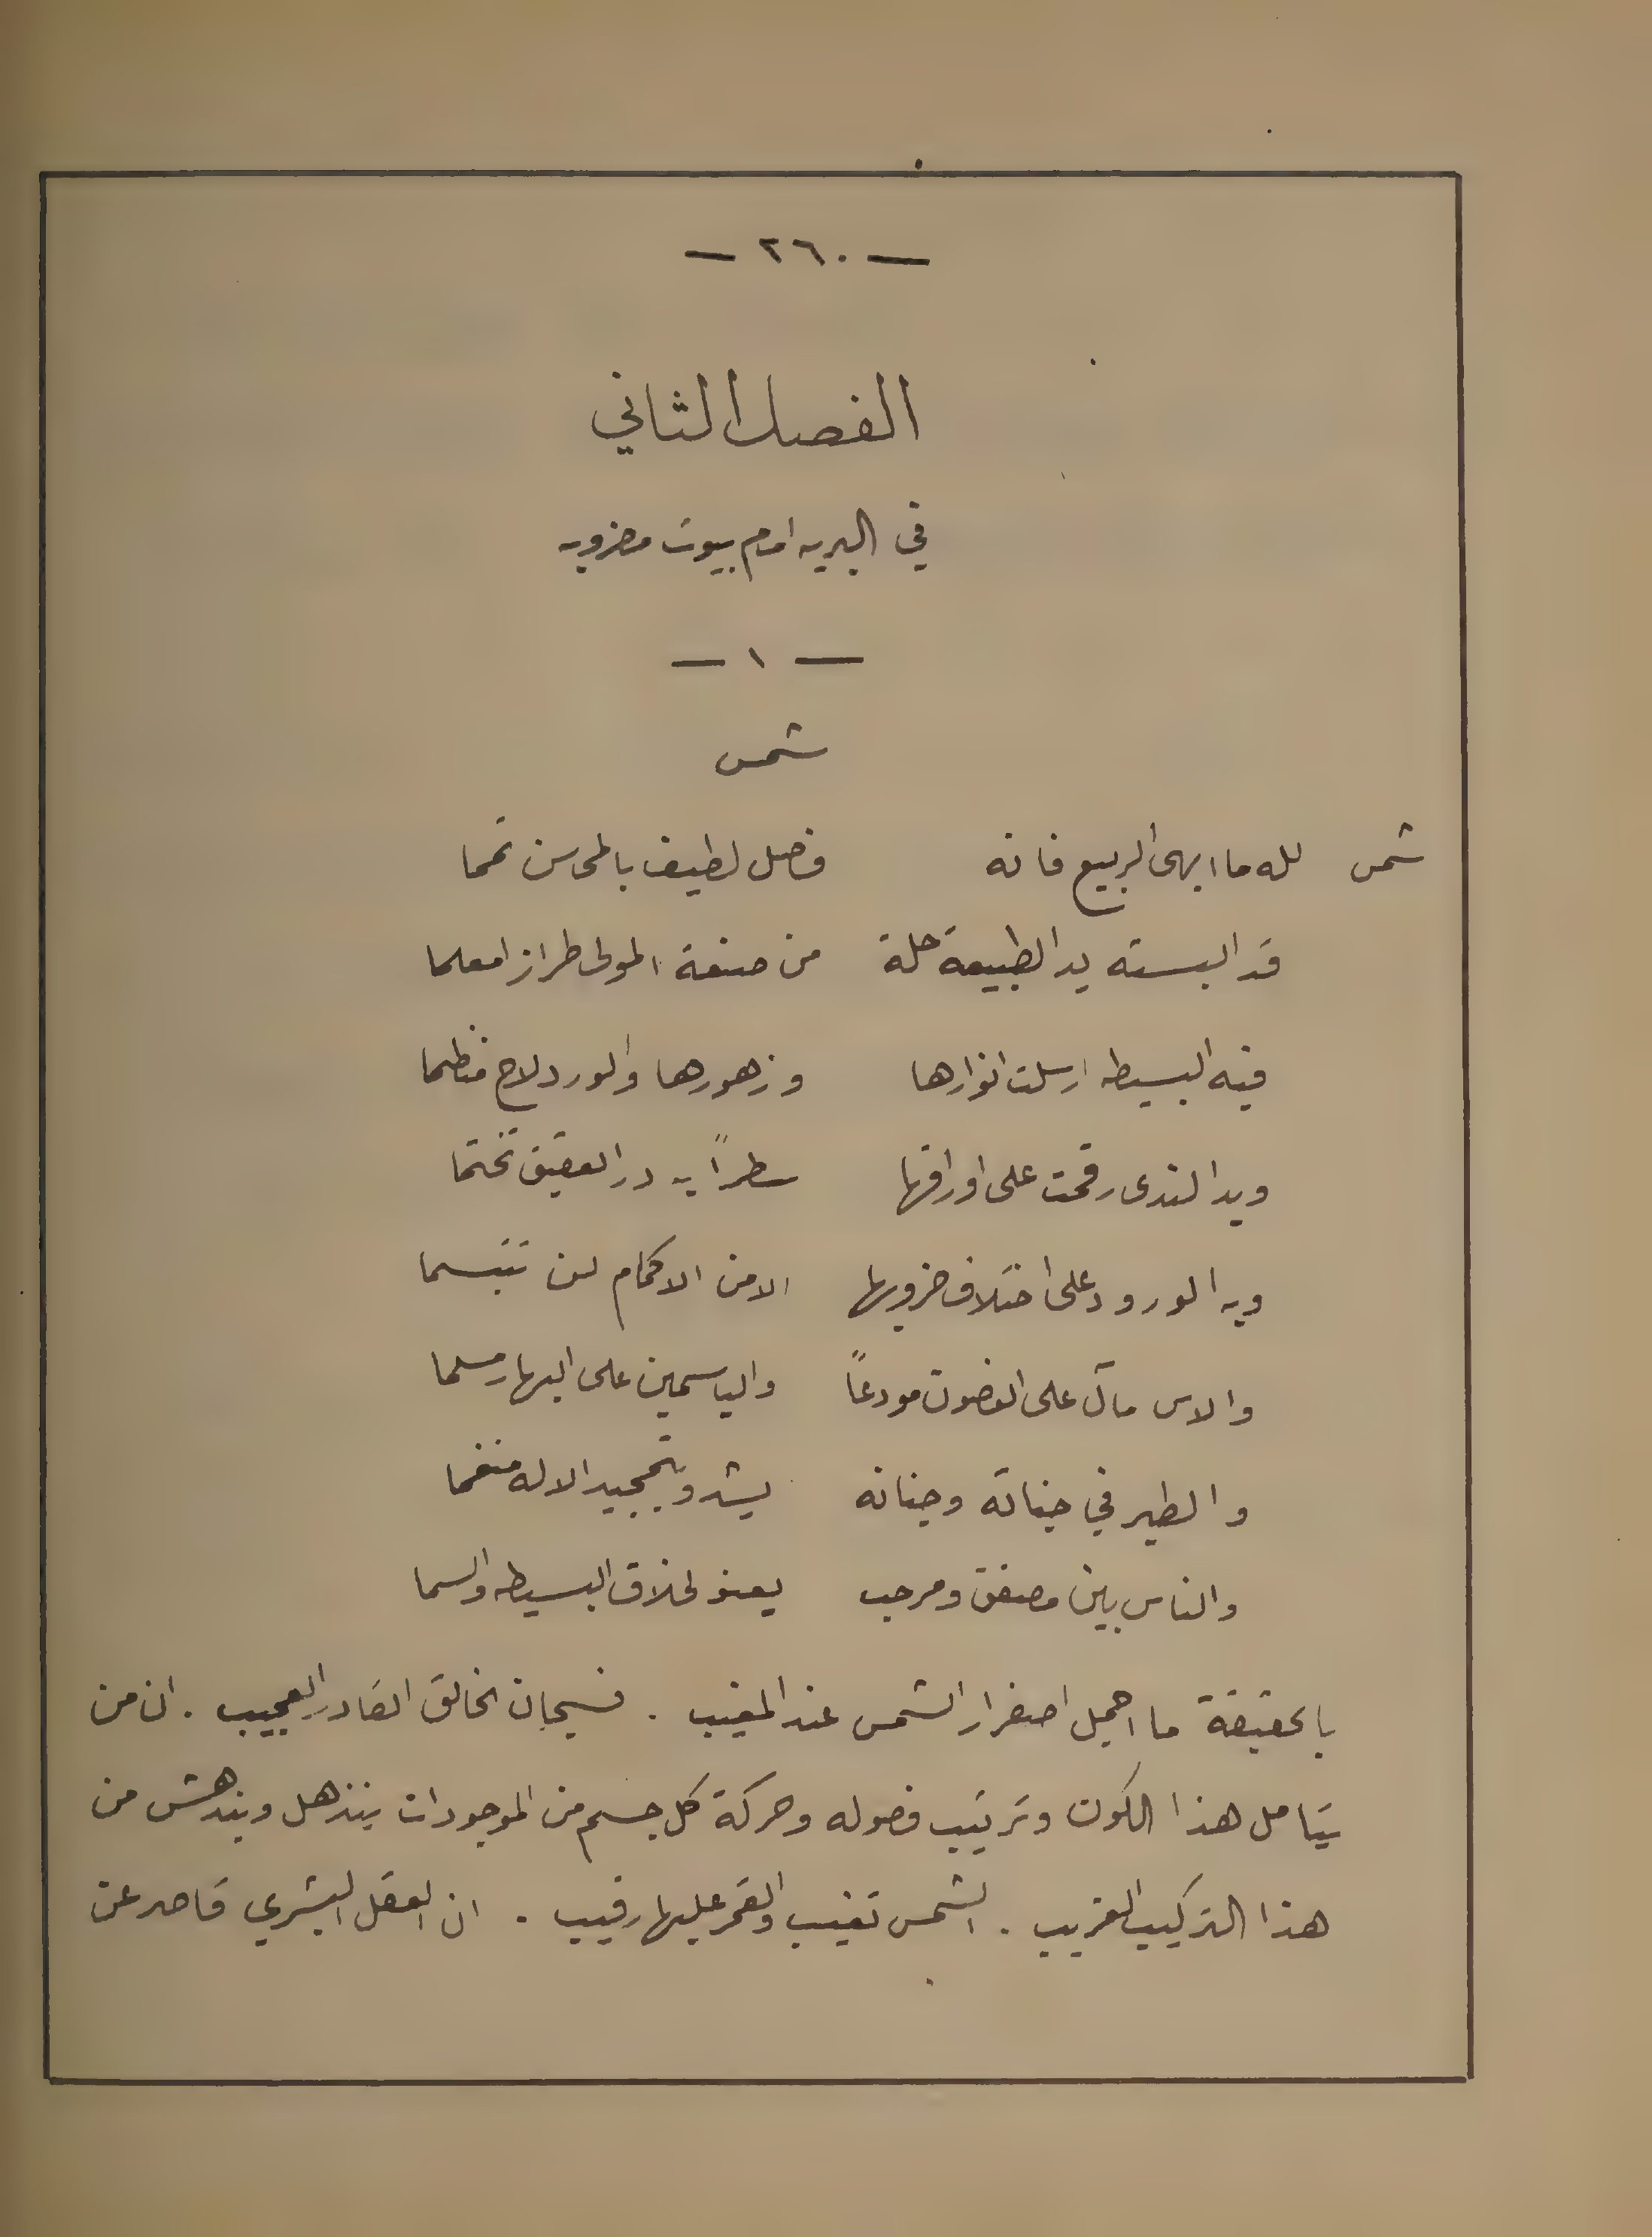 — ٢٦٠ —
الفصل الثاني
في البريه امام بيوت مضروبه
— ١ —
شمس
شمس لله ما ابهى الربيع فانه فصل لطيف بالمحاسن تمما
قد البسته يد الطبيعة حلة من صنعة المولى طرازا معلما
فيه البسيطه ارسلت انوارها وزهورها والورد لاح منظما
ويد الندى رقمت على اوراقها سطراً به در العقيق تختما
وبه الورود على اختلاف ضروبها الا من الاكمام لن تتبسما
والاس مال على الغصون مودعاً والياسمين على البهار مسلما
والطير في جناته وجنانه يشدو بتمجيد الاله منغما
والناس بين مصفق ومرحب يعنو لخلاق البسيطه والسما
بالحقيقة ما اجمل اصفرار الشمس عند المغيب . فسبحان الخالق القادر العجيب . ان من
يتامل هذا الكون وترتيب فصوله وحركة كل جسم من الموجودات ينذهل ويندهش من
هذا التركيب الغريب . الشمس تغيب والقمر عليها رقيب . ان العقل البشري قاصر عن